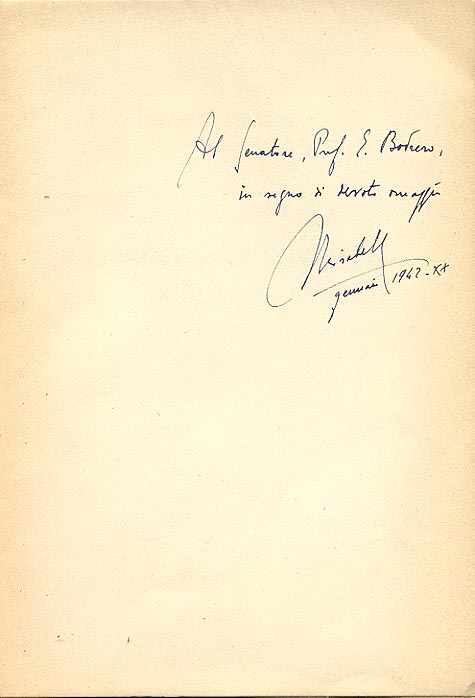 Al Senatore, Prof. E. Bodrero,
in segno di devoto omaggio
gennaio 1942-XX